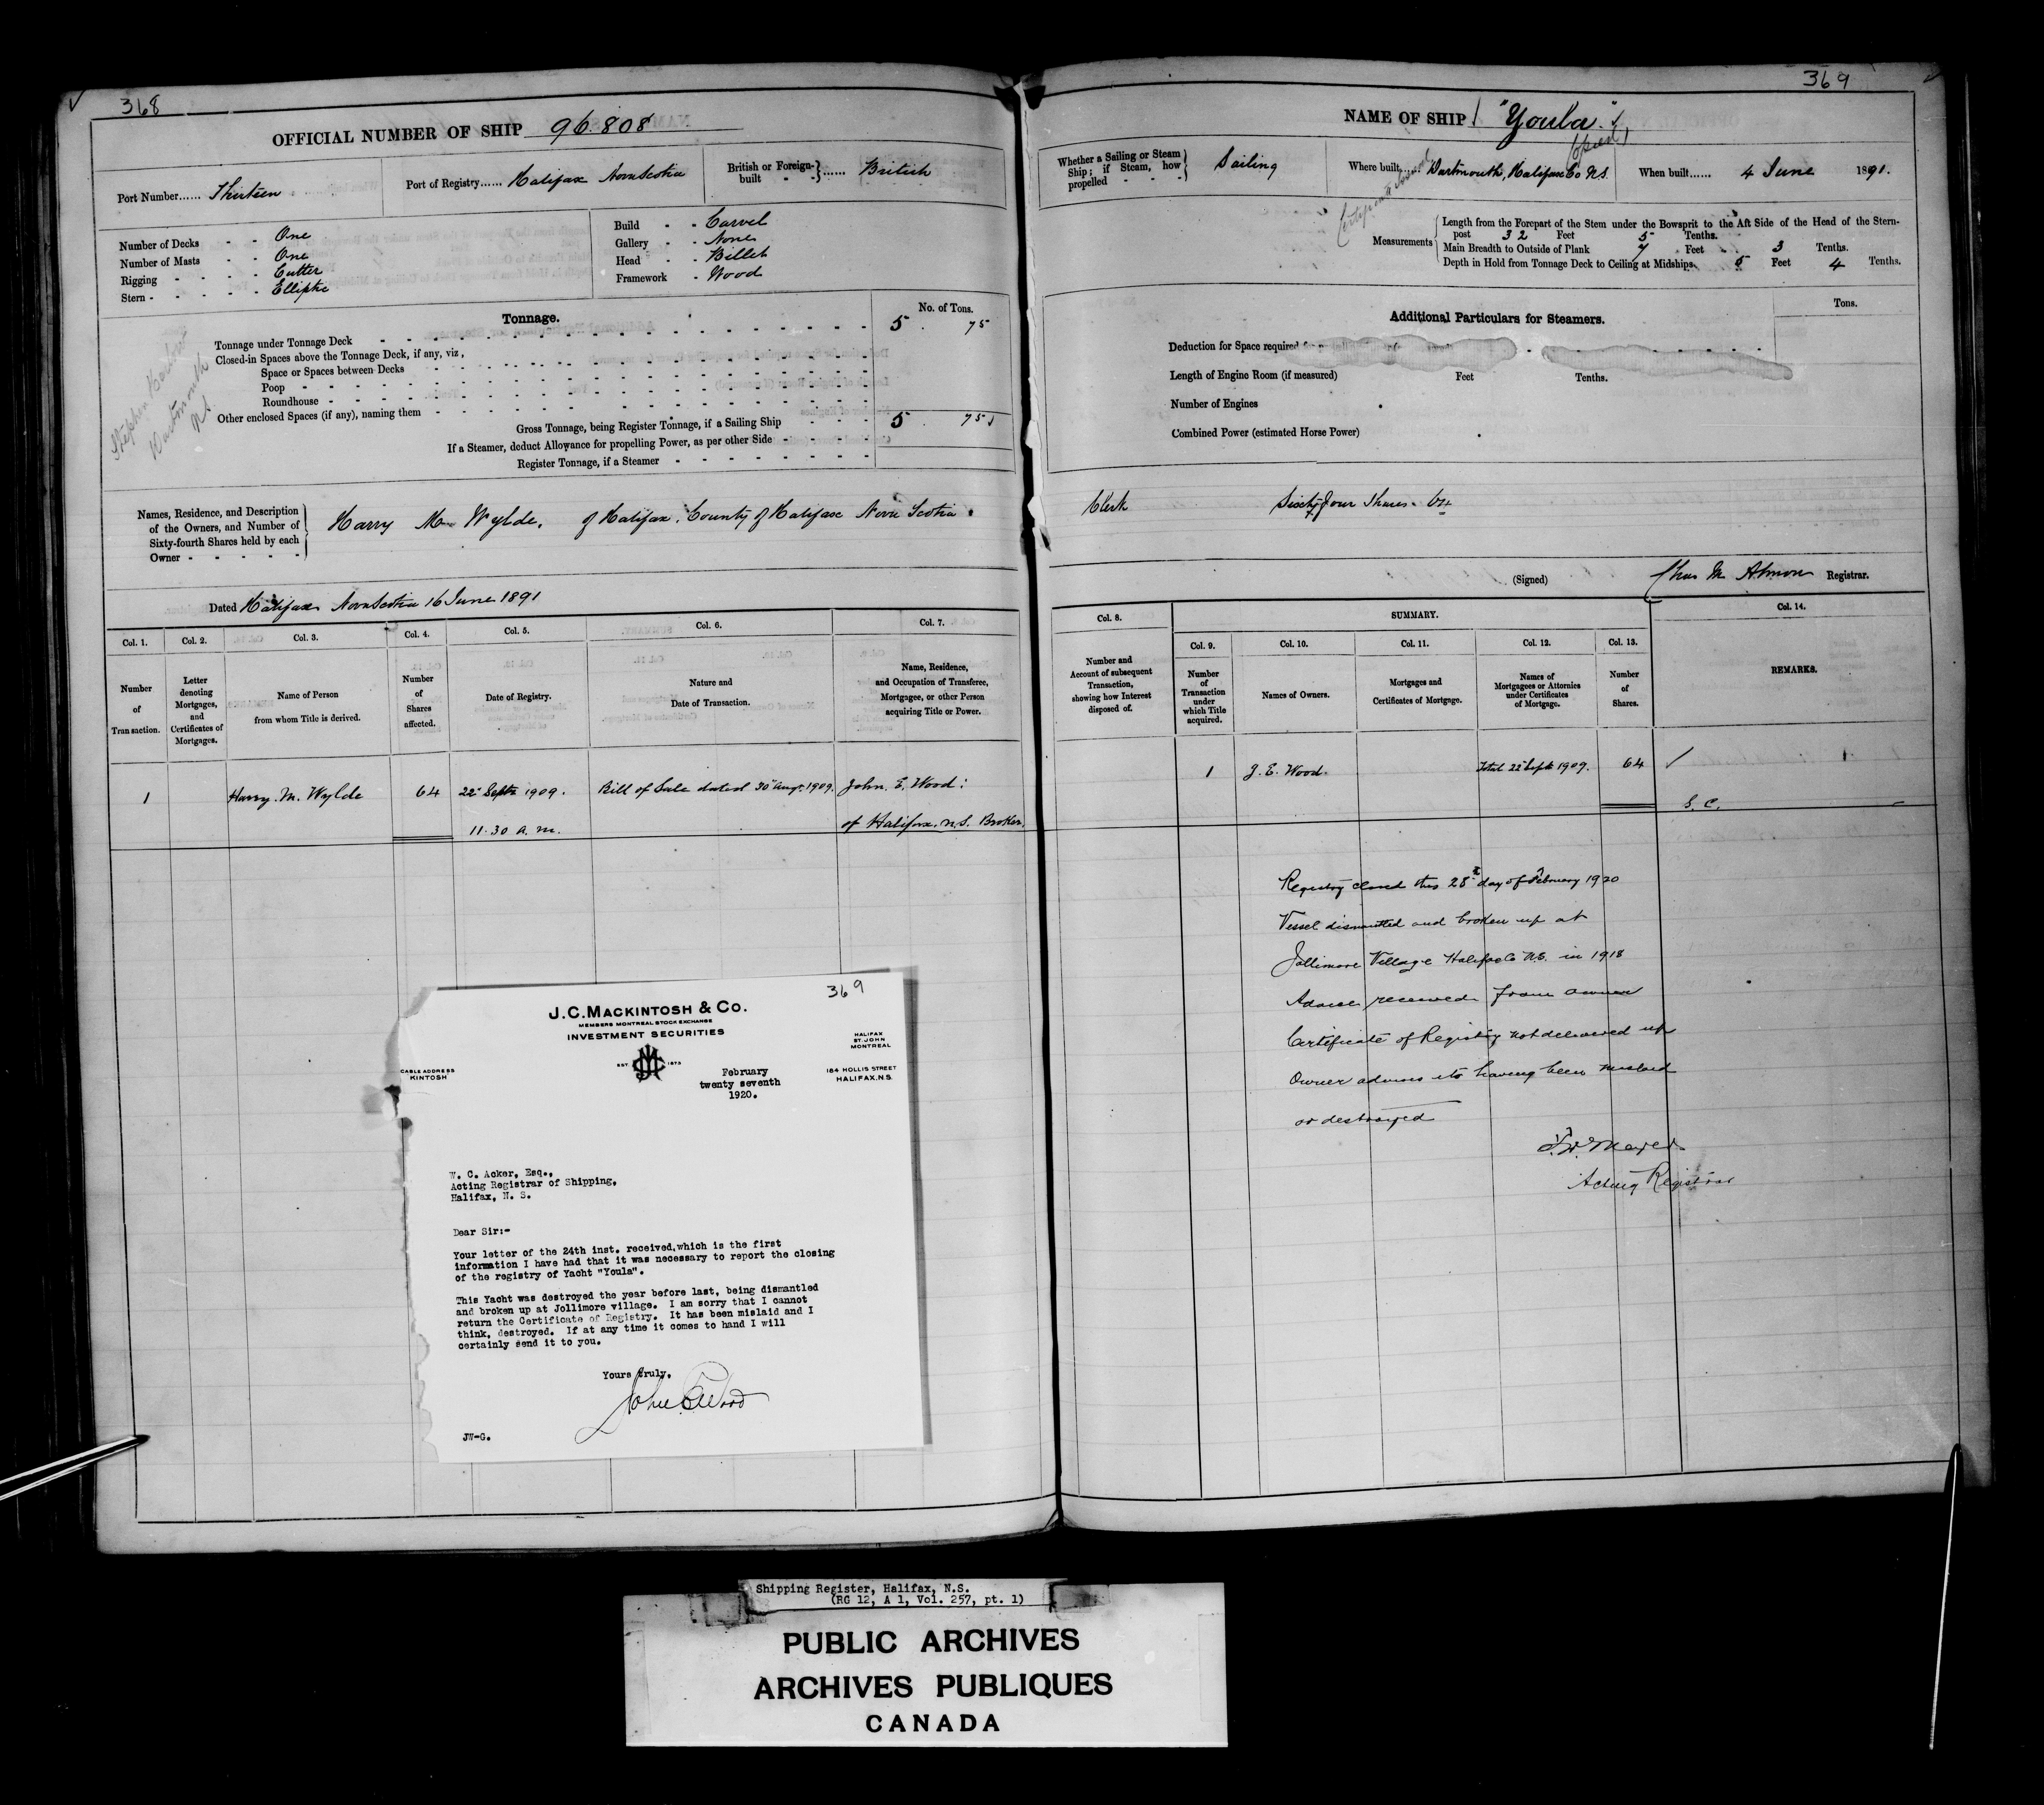 368
OFFICIAL NUMBER OF SHIP 96.808
Port Number...... Thirteen
Port of Registry...... Halifax Nova Scotia
British or Foreign-built - - ...... British
Number of Decks - - One
Number of Masts - - One
Rigging - - - - Cutter
Stern - - - - - Elliptic
Build - - Carvel
Gallery - - None
Head - - Billet
Framework - Wood
Tonnage.
No. of Tons.
Tonnage under Tonnage Deck 5 . 75
Closed-in Spaces above the Tonnage Deck, if any, viz,
Space or Spaces between Decks
Poop
Roundhouse
Other enclosed Spaces (if any), naming them
Gross Tonnage, being Register Tonnage, if a Sailing Ship 5 . 75
If a Steamer, deduct Allowance for propelling Power, as per other Side
Register Tonnage, if a Steamer
Stephen
Dartmouth
N.S.
Names, Residence, and Description
of the Owners, and Number of
Sixty-fourth Shares held by each
Owner
Harry M Wylde, of Halifax, County of Halifax Nova Scotia
Dated Halifax Nova Scotia 16 June 1891
Col. 1.
Number
of
Transaction.
Col. 2.
Letter
denoting
Mortgages,
and
Certificates of
Mortgages.
Col. 3.
Name of Person
from whom Title is derived.
Col. 4.
Number
of
Shares
affected.
Col. 5.
Date of Registry.
Col. 6.
Nature and
Date of Transaction.
Col. 7.
Name, Residence,
and Occupation of Transferee,
Mortgagee, or other Person
acquiring Title or Power.
1 Harry. M. Wylde 64 22 Septr 1909. Bill of Sale dated 30 Aug. 1909. John. E. Wood:
11.30 a.m. of Halifax. N.S. Broker.
369
J.C. MACKINTOSH & CO.
MEMBERS MONTREAL STOCK EXCHANGE
INVESTMENT SECURITIES
HALIFAX
ST. JOHN
MONTREAL
EST. 1873
CABLE ADDRESS
KINTOSH
184 HOLLIS STREET
HALIFAX, N.S.
February
twenty seventh
1920.
W. C. Acker, Esq.,
Acting Registrar of Shipping,
Halifax, N. S.
Dear Sir:-
Your letter of the 24th inst. received,which is the first
information I have had that it was necessary to report the closing
of the registry of Yacht "Youla".
This Yacht was destroyed the year before last, being dismantled
and broken up at Jollimore village. I am sorry that I cannot
return the Certificate of Registry. It has been mislaid and I
think, destroyed. If at any time it comes to hand I will
certainly send it to you.
Yours truly,
John E Wood
JW-G.
369
NAME OF SHIP "Youla".
Whether a Sailing or Steam
Ship; if Steam, how
propelled
Sailing
Where built...... Dartmouth, Halifax Co N.S.
When built...... 4 June 1891.
Measurements
Length from the Forepart of the Stem under the Bowsprit to the Aft Side of the Head of the Stern-
post 32 Feet 5 Tenths.
Main Breadth to Outside of Plank 7 Feet 3 Tenths.
Depth in Hold from Tonnage Deck to Ceiling at Midships 5 Feet 4 Tenths.
Additional Particulars for Steamers.
Tons.
Deduction for Space required
Length of Engine Room (if measured) Feet Tenths.
Number of Engines
Combined Power (estimated Horse Power)
Clerk Sixty four Shares. 64
(Signed) Chas M. Almon Registrar.
Col. 8.
Number and
Account of subsequent
Transaction,
showing how Interest
disposed of.
SUMMARY.
Col. 9.
Number
of
Transaction
under
which Title
acquired.
Col. 10.
Names of Owners.
Col. 11.
Mortgages and
Certificates of Mortgage.
Col. 12.
Names of
Mortgagees or Attornies
under Certificates
of Mortgage.
Col. 13.
Number
of
Shares.
Col. 14.
REMARKS.
1 J. E. Wood. Total 22 Sept 1909. 64
Registry closed this 28th day of February 1920
Vessel dismantled and broken up at
Jollimore Village Halifax Co N.S. in 1918
Advice received from owner
Certificate of Registry not delivered up
Owner advises its having been mislaid
or destroyed
Acting Registrar
Shipping Register, Halifax, N.S.
(RG 12, A 1, Vol. 257, pt. 1)
PUBLIC ARCHIVES
ARCHIVES PUBLIQUES
CANADA